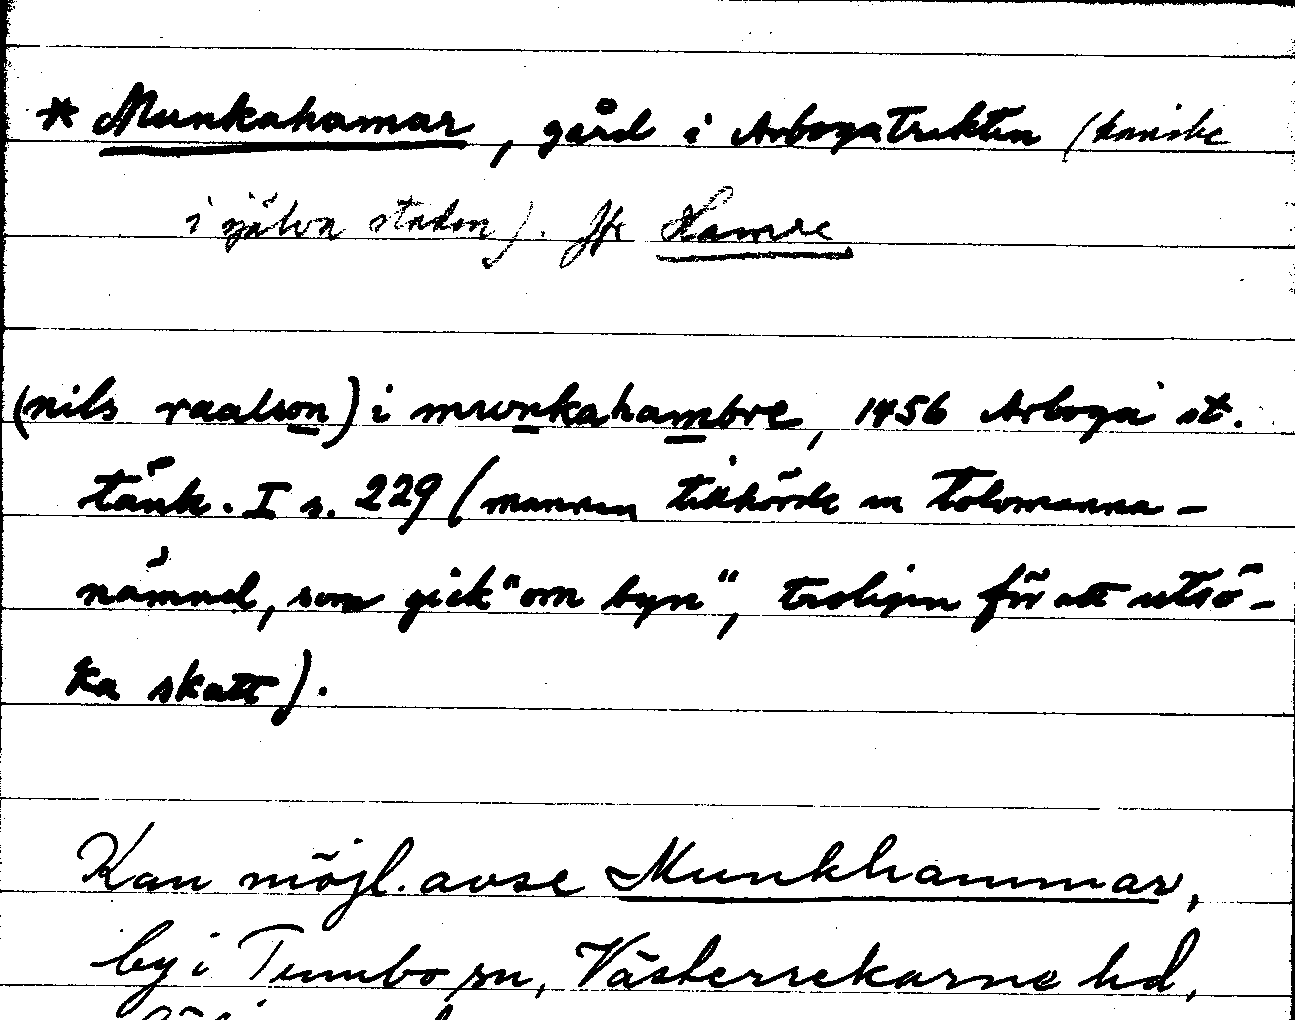 * Munkahamar, gård i Arbogatrakten (kanske
i själva staden). Jfr Hamre
(nils raalson) i munkahambre, 1456 Arboga st.
tänk. I s. 229 (mannen tillhörde en tolvmanna-
nämnd, som gick "om byn", troligen för att utsö-
ka skatt).
Kan möjl. avse Munkhammar,
by i Tumbo sn, Västerrekarne hd,